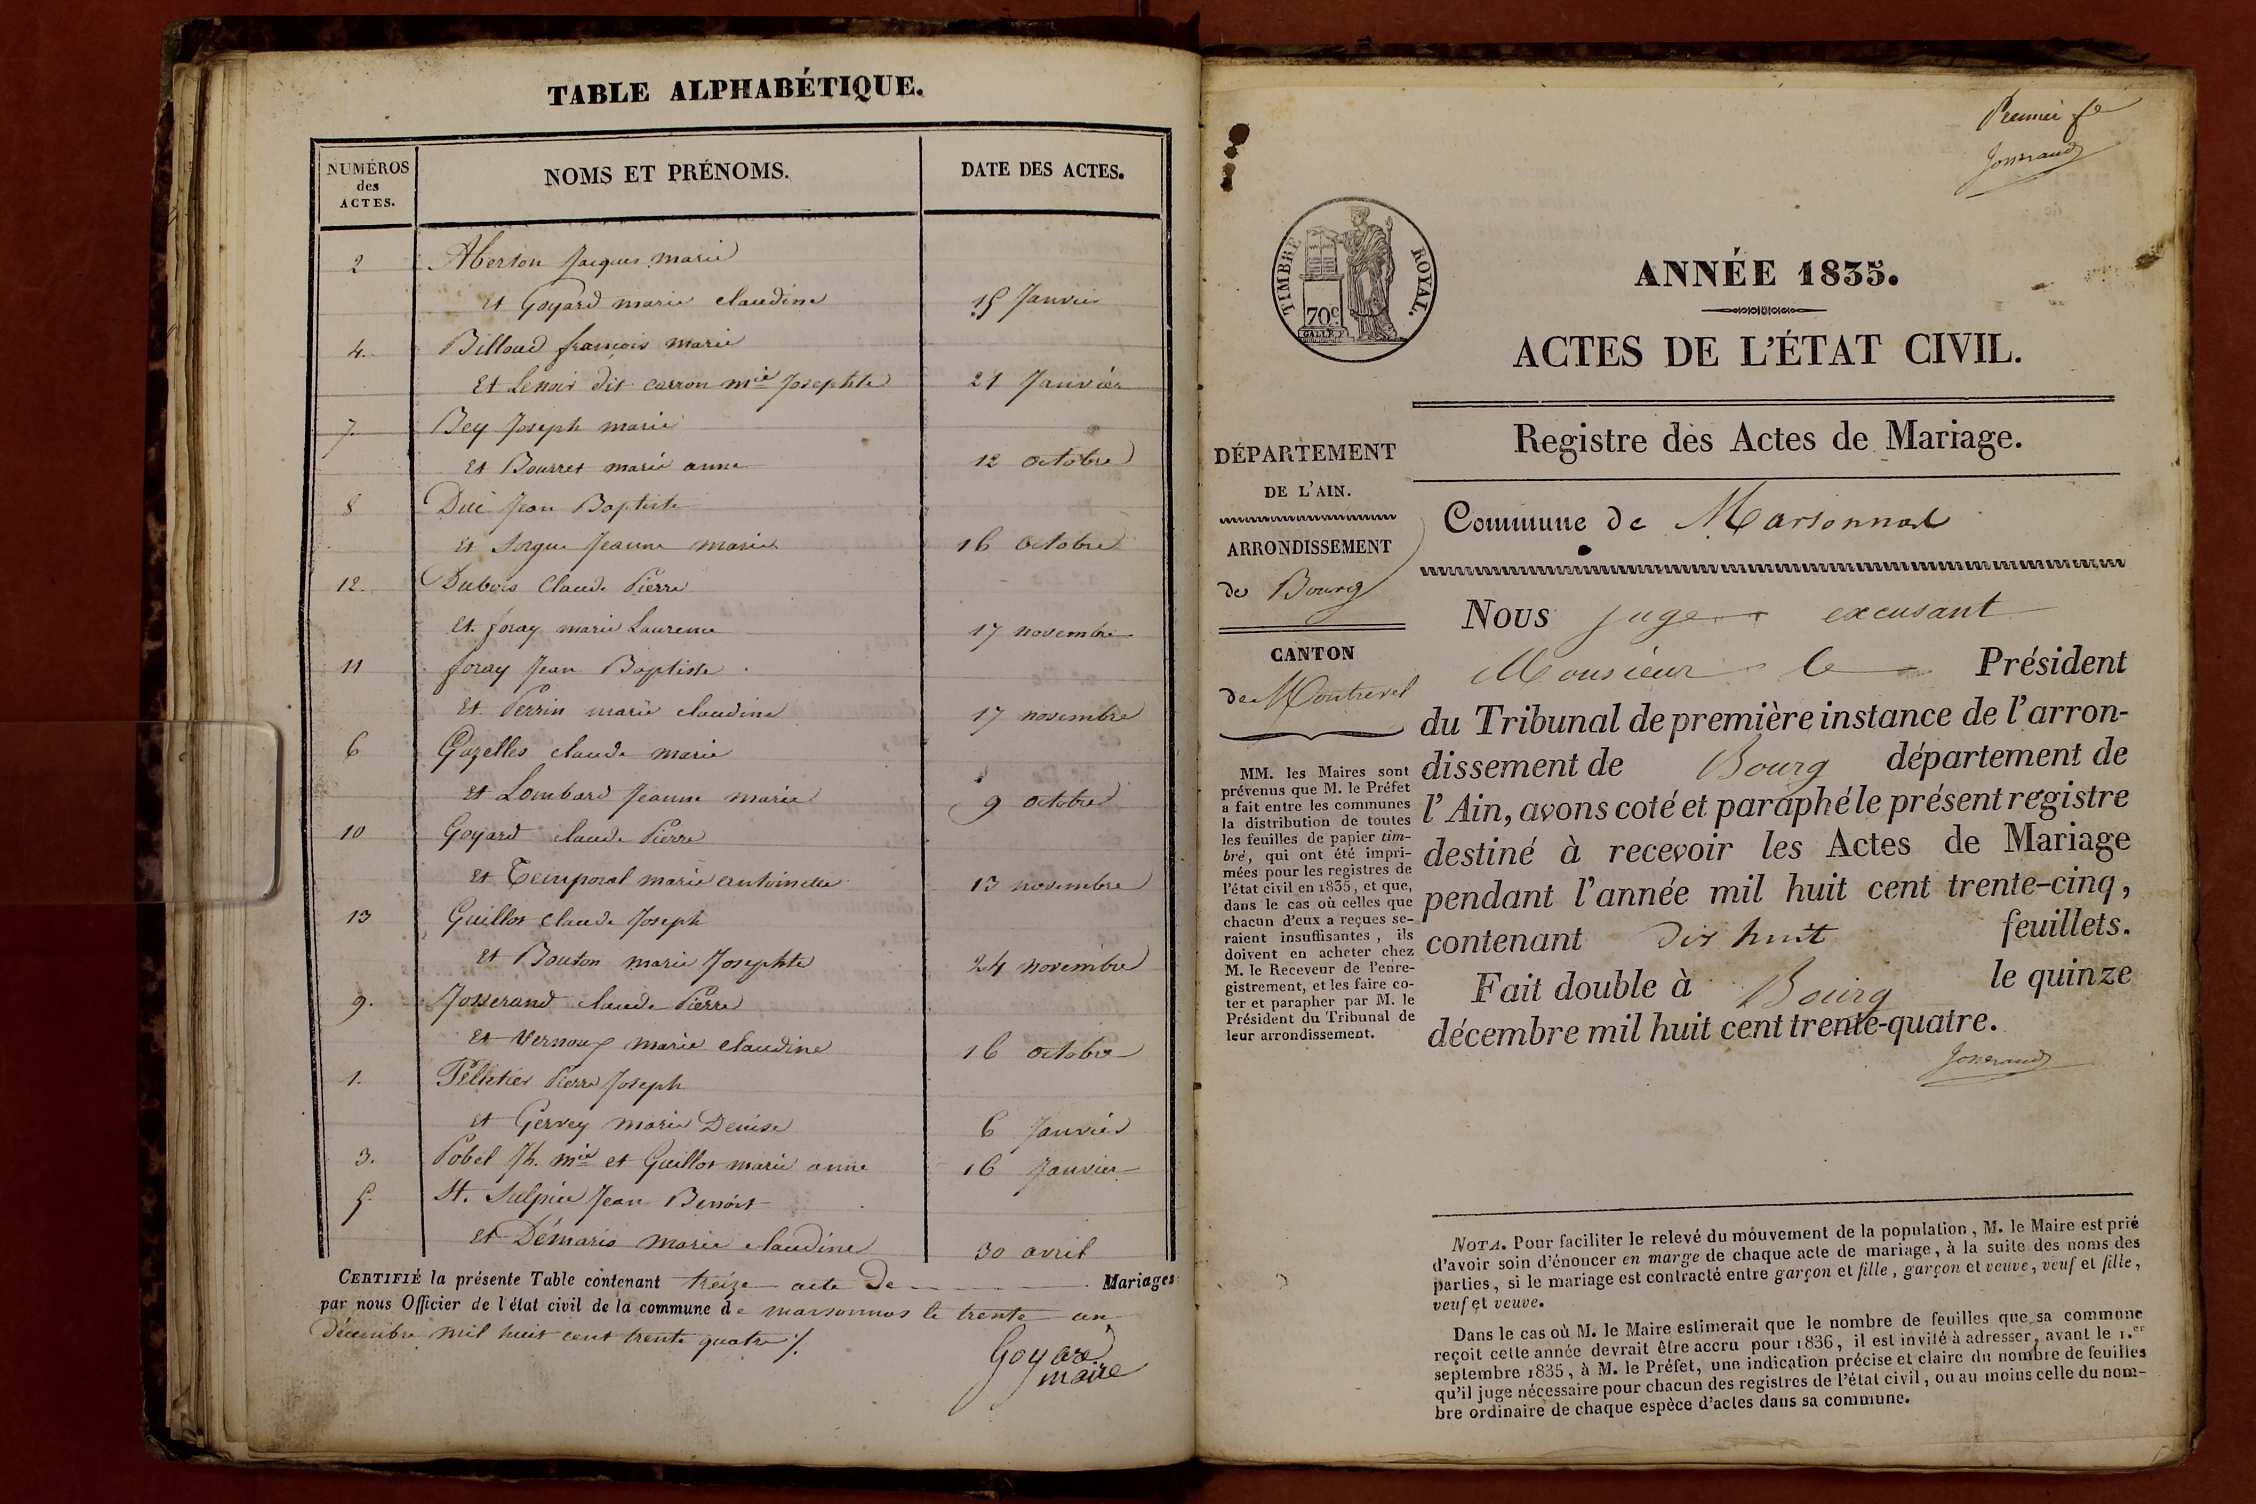 TABLE ALPHABÉTIQUE.
NUMÉROS des ACTES.
NOMS ET PRÉNOMS.
DATE DES ACTES.
2 Aberson Jacques marie
et Goyard marie claudine 15 Janvier
4. Billoud françois marie
Et Lenoir dit carron mie Josephte 21 Janvier
7. Bey Joseph marie
et Bourret marie anne 12 octobre
8 Duc Jean Baptiste
et Sorgue Jeanne marie 16 octobre
12. Dubois Claude Pierre
et foray marie Laurence 17 novembre
11 foray Jean Baptiste
Et Perrin marie claudine 17 novembre
6 Gazelles claude marie
et Lombard Jeanne marie 9 octobre
10 Goyard claude Pierre
et Temporal marie antoinette 13 novembre
13 Guillot claude Joseph
et Bouton marie Josephte 24 novembre
9. Josserand claude Pierre
et Vernoux marie claudine 16 octobre
1. Pelletier Pierre Joseph
et Gervey marie Denise 6 Janvier
3. Pobel Jh. mie et Guillot marie anne 16 Janvier
5. St. Sulpice Jean Benoit
et Démaris marie claudine 30 avril
CERTIFIÉ la présente Table contenant treize acte de Mariages
par nous Officier de l'état civil de la commune de marsonnas le trente un
Décembre mil huit cent trente quatre /.
Goyard
maire
Premier fe
Josserand
TIMBRE ROYAL.
70c
GALLE F
ANNÉE 1835.
ACTES DE L'ÉTAT CIVIL.
Registre des Actes de Mariage.
DÉPARTEMENT
DE L'AIN.
ARRONDISSEMENT
de Bourg
CANTON
de Montrevel
MM. les Maires sont
prévenus que M. le Préfet
a fait entre les communes
la distribution de toutes
les feuilles de papier tim-
bré, qui ont été impri-
mées pour les registres de
l'état civil en 1835, et que,
dans le cas où celles que
chacun d'eux a reçues se-
raient insuffisantes, ils
doivent en acheter chez
M. le Receveur de l'enre-
gistrement, et les faire co-
ter et parapher par M. le
Président du Tribunal de
leur arrondissement.
Commune de Marsonnas
Nous juge excusant
Monsieur le Président
du Tribunal de première instance de l'arron-
dissement de Bourg département de
l'Ain, avons coté et paraphé le présent registre
destiné à recevoir les Actes de Mariage
pendant l'année mil huit cent trente-cinq,
contenant dix huit feuillets.
Fait double à Bourg le quinze
décembre mil huit cent trente-quatre.
Josserand
NOTA. Pour faciliter le relevé du mouvement de la population, M. le Maire est prié
d'avoir soin d'énoncer en marge de chaque acte de mariage, à la suite des noms des
parties, si le mariage est contracté entre garçon et fille, garçon et veuve, veuf et fille,
veuf et veuve.
Dans le cas où M. le Maire estimerait que le nombre de feuilles que sa commune
reçoit cette année devrait être accru pour 1836, il est invité à adresser, avant le 1.er
septembre 1835, à M. le Préfet, une indication précise et claire du nombre de feuilles
qu'il juge nécessaire pour chacun des registres de l'état civil, ou au moins celle du nom-
bre ordinaire de chaque espèce d'actes dans sa commune.